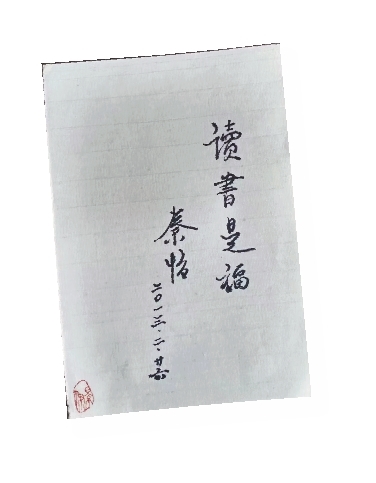 讀書是福
秦怡
二〇一三.二.廿六